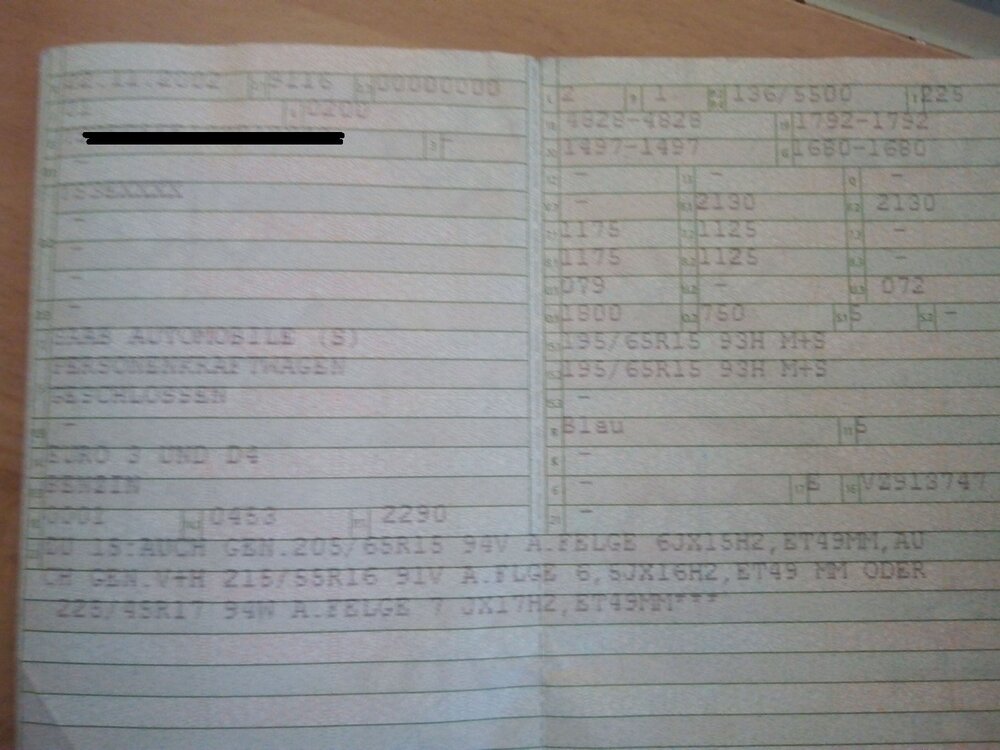 .11.2002 9116 00000000
01 0200
-
-
-
-
-
SAAB AUTOMOBILE (S)
PERSONENKRAFTWAGEN
GESCHLOSSEN
-
EURO 3 UND D4
BENZIN
0001 0453 2290
2 1 136/5500 225
4628-4628 1792-1792
1497-1497 1680-1680
- - -
- 2130 2130
1175 1125 -
1175 1125 -
079 - 072
1800 760 5 -
195/65R15 93H M+S
195/65R15 93H M+S
-
Blau 5
-
- E VZ913747
-
ZU 15:AUCH GEN.205/65R15 94V A.FELGE 6JX15H2,ET49MM,AU
CH GEN.V+H 215/55R16 91V A.FLGE 6,5JX16H2,ET49 MM ODER
225/45R17 94W A.FELGE 7 JX17H2,ET49MM***